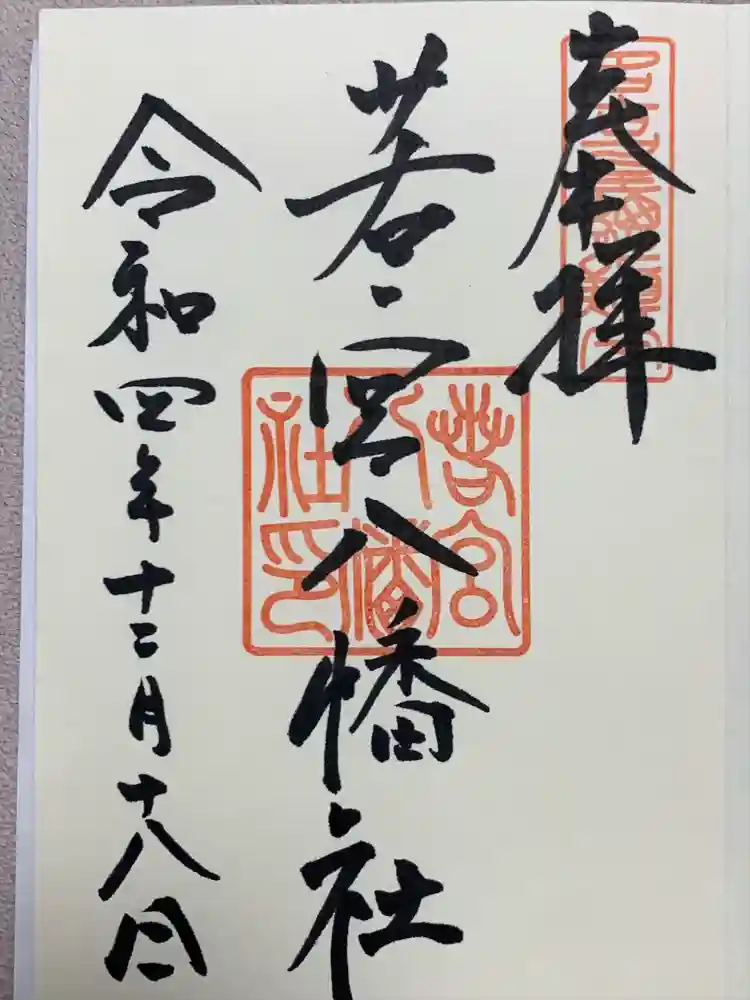 奉拝
若宮八幡社
令和四年十二月十八日
若宮
八幡
社印